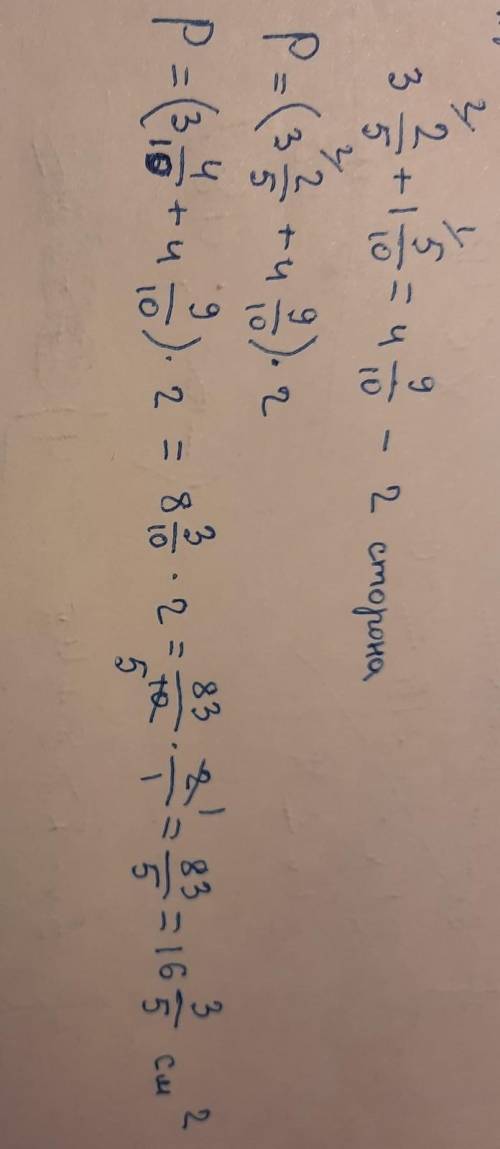 3 2/5 + 1 5/10 = 4 9/10 - 2 сторона
P = (3 2/5 + 4 9/10) · 2
P = (3 4/10 + 4 9/10) · 2 = 8 3/10 · 2 = 83/10 · 2/1 = 83/5 = 16 3/5 см²